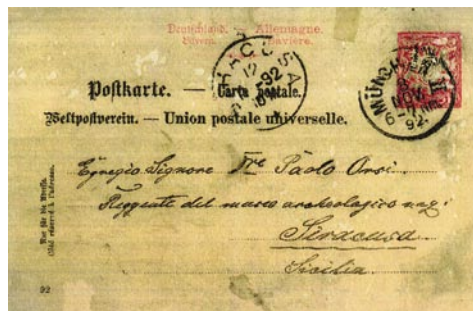 Deutschland. — Allemagne.
Bayern. — Bavière.
12
92
MÜNCHEN
NOV.
92
Postkarte. — Carta postale.
Weltpostverein. — Union postale universelle.
Egregio Signore Dre Paolo Orsi.
Reggente del museo archeologico naz:
Siracusa
Sicilia.
Nur für die Adresse.
(Côté réservé à l'adresse.
92